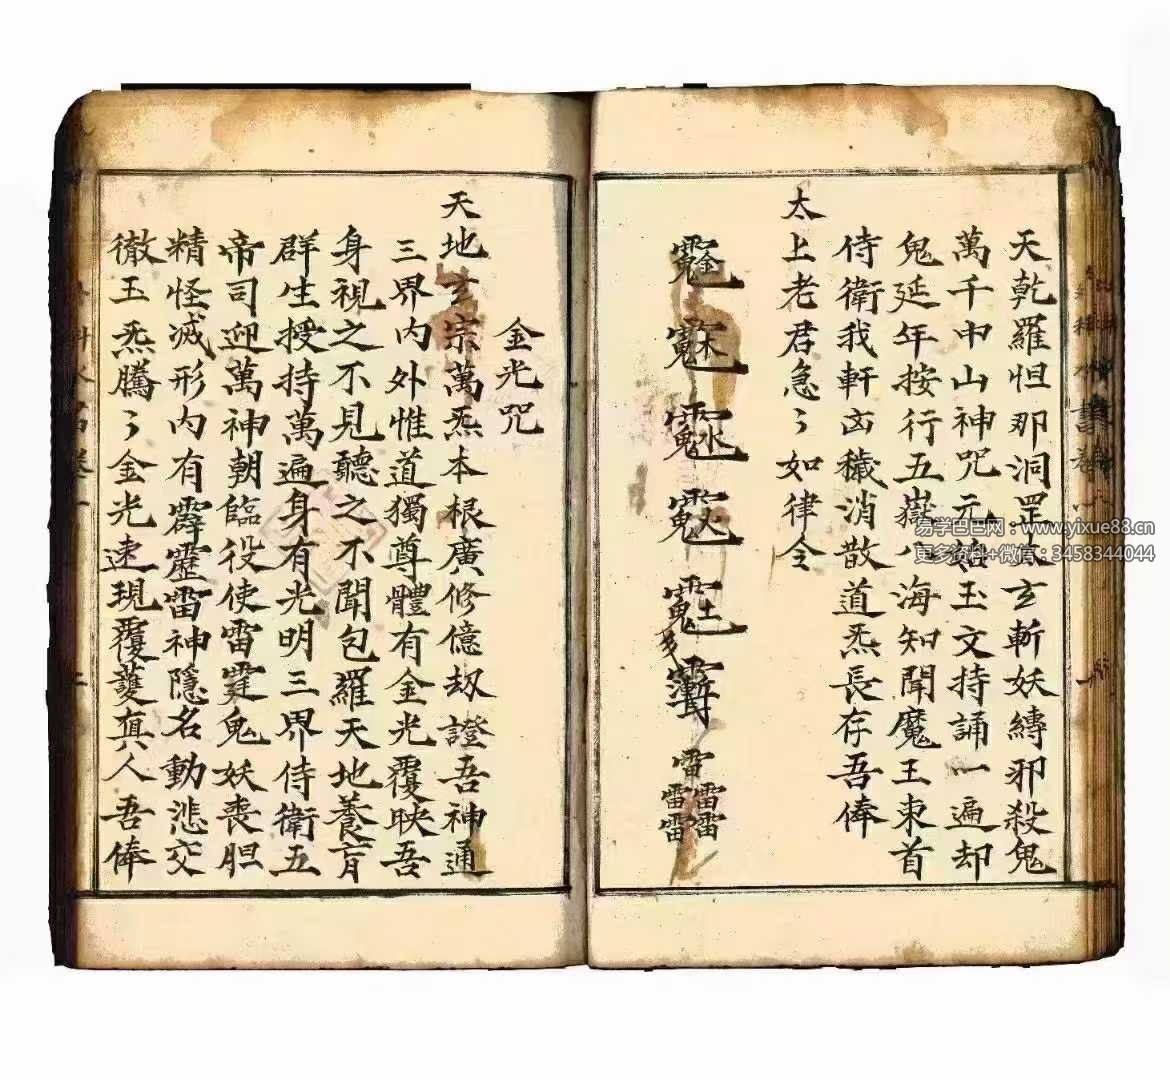 天乾羅怛那洞罡太玄斬妖縛邪殺鬼
萬千中山神咒元始玉文持誦一遍却
鬼延年按行五嶽八海知聞魔王東首
侍衛我軒凶穢消散道炁長存吾俸
太上老君急〻如律令
金光咒
天地玄宗萬炁本根廣修億劫證吾神通
三界內外惟道獨尊體有金光覆映吾
身視之不見聽之不聞包羅天地養育
群生授持萬遍身有光明三界侍衛五
帝司迎萬神朝臨役使雷霆鬼妖喪胆
精怪滅形内有霹靂雷神隱名動悲交
徹玉炁騰〻金光速現覆護真人吾俸
易学巴巴网：www.yixue88.cn
更多资料+微信：3458344044